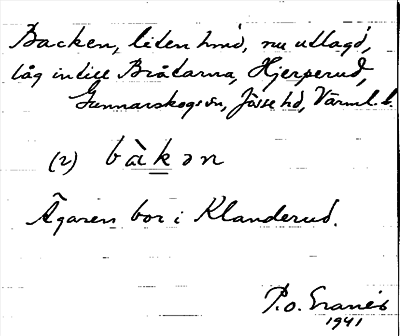 Backen, liten hmd, nu utlagd,
låg intill Bråtarna, Hjerperud,
Gunnarskogs sn, Jösse hd, Värml. l.
(2) bàkən
Ägaren bor i Klanderud.
P.o. Granér
1941